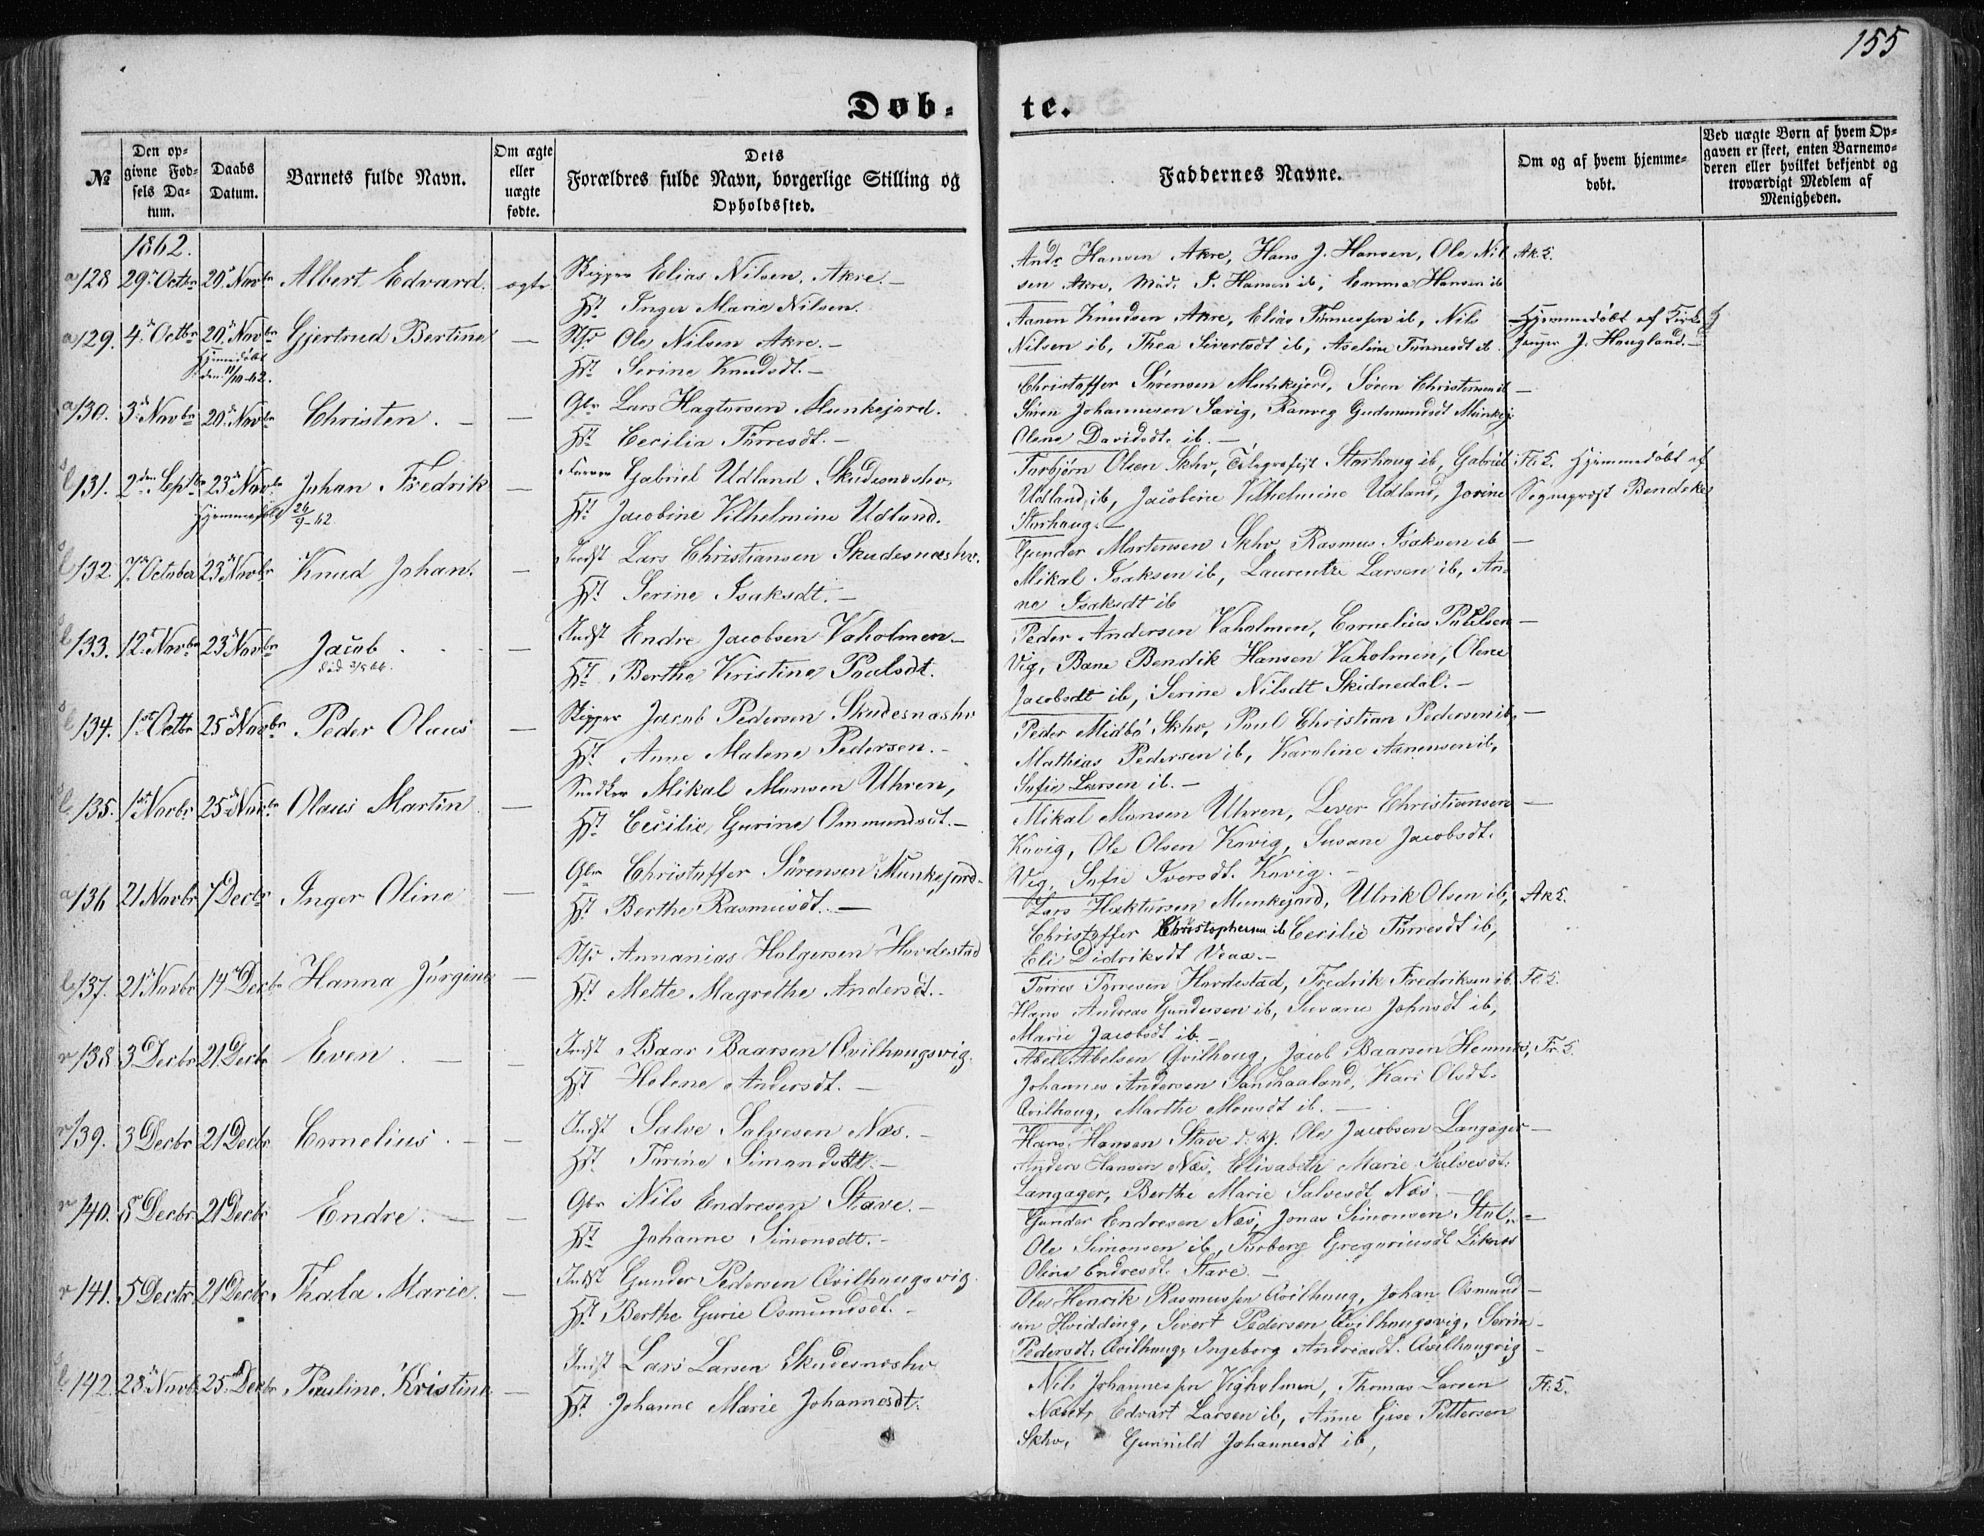 155
Døb-
te.
№
Den op-
givne Fød-
sels Da-
tum.
Daabs
Datum.
Barnets fulde Navn.
Om ægte
eller
uægte
fødte.
Dets
Forældres fulde Navn, borgerlige Stilling og
Opholdssted.
Faddernes Navne.
Om og af hvem hjemme-
døbt.
Ved uægte Børn af hvem Op-
gaven er skeet, enten Barnemo-
deren eller hvilket bekjendt og
troværdigt Medlem af
Menigheden.
1862.
a 128 29 Octbr 20 Novbr Albert Edvard. ægte Skipper Elias Nilsen, Akre. —
Inger Marie Nilsen.
Andr Hansen Akre, Hans J. Hansen, Ole Nil
sen Akre, Mad. I. Hansen ib, Emma Hansen ib
a 129. 4 Octbr 20 Novbr Gjertrud Bertine — Ole Nilsen Akre. —
Hjemmedøbt
den 11/10-62.
Serine Knudsdt. —
Aanen Knudsen Akre, Elias Tønnessen ib, Nils
Nilsen ib, Thea Sivertsdt ib, Aseline Tønnesdt ib.
Hjemmedøbt af Kirke
sanger J. Haugland. —
a 130. 3 Novbr 20. Novbr Christen. — — Gbr Lars Hagtorsen Munkejord.
Cecilia Tørresdt. —
Christoffer Sørensen Munkejord, Søren Christensen ib —
Søren Johannesen Sævig, Ranveg Gudmundsdt Munkej.
Olene Davidsdt. ib. —
131. 2den Septbr 23 Novbr Johan Fredrik — Gabriel Udland Skudesneshv.
Hjemmedøbt 26/9-62
Jacobine Vilhelmine Udland.
Torbjørn Olsen Skhv, Telegrafist Storhaug ib, Gabriel
Udland, ib, Jacobine Vilhelmine Udland, Jorine
Storhaug. —
Hjemmedøbt af
Sognepræst Bendeke
132. 7 October 23 Novbr Knud Johan. — Indst Lars Christiansen Skudesneshv.
Serine Isaksdt. —
Gunder Mortensen Skhv, Rasmus Isaksen ib —
Mikal Isaksen ib, Laurentze Larsen ib, An-
ne Isaksdt ib
133. 12 Novbr 23 Novbr Jacob — Indst Endre Jacobsen Vaholmen —
Berthe Kristine Poulsdt.
Peder Andersen Vaholmen, Cornelius Poulsen —
Vig, Bane Bendik Hansen Vaholmen, Olene
Jacobsdt ib, Serine Nilsdt Skidnedal. —
134. 1st Octbr 25 Novbr Peder Olaus — Skipper Jacob Pedersen Skudesneshv
Anne Malene Pedersen. —
Peder Midbø Skhv, Poul Christian Pedersen ib, —
Mathias Pedersen ib, Karoline Aanensen ib,
Sofie Larsen ib. —
135. 1st Novbr 25 Novbr Olaus Martin — Snedker Mikal Monsen Uhren,
Cecilie Gurine Ommundsdt. —
Mikal Monsen Uhren, Lever Christiansen —
Kavig, Ole Olsen Kavig, Susane Jacobsdt.
Vig, Sofie Iversdt. Kavig. —
a 136 21 Novbr 7 Decbr Inger Oline — Gbr Christoffer Sørensen Munkejord.
Berthe Rasmusdt. —
Lars Haktorsen Munkejord, Ulrik Olsen ib,
Christoffer Christophersen ib Cecilie Tørresdt ib,
Eli Didriksdt Veaa. —
137. 21 Novbr 14 Decbr Hanna Jørgine — Annanias Holgersen Hovdestad
Mette Magrethe Andersdt.
Tørres Tørresen Hovdestad, Fredrik Fredriksen ib.
Hans Andreas Gundersen ib, Susane Johnsdt ib,
Marie Jacobsdt ib. —
138 3 Decbr 21 Decbr Even — — Indst Baar Baarsen Qvilhaugsvig.
Helene Andersdt. —
Abel Abelsen Qvilhaug, Jacob Baarsen Hemnes,
Johannes Andersen Sandhaaland, Kari Olsdt.
Qvilhaug, Marthe Monsdt ib. —
139. 3 Decbr 21 Decbr Cornelius. — — Indst Salve Salvesen Næs. —
Torine Simonsdtt. —
Hans Hansen Stave d. y. Ole Jacobsen Langager —
Anders Hansen Næs, Elisabeth Marie Salvesdt.
Langager, Berthe Marie Salvesdt Næs. —
140. 8 Decbr 21 Decbr Endre. — — Gbr Nils Endresen Stave. —
Johanne Simonsdt. —
Gunder Endresen Næs, Jonas Simonsen Stol, —
Ole Simonsen ib, Torberg Gregoriusdt Liknes
Oline Endresdt. Stave. —
141. 5 Decbr 21 Decbr. Thala Marie. — Indst Gunder Pedersen Qvilhaugsvig.
Berthe Gurie Osmundsdt. —
Ole Henrik Rasmussen Qvilhaug, Johan Osmund —
sen Hvidding, Sivert Pedersen Qvilhaugsvig, Serine
Pedersdt. Qvilhaug, Ingeborg Andreasdt. Qvilhaugvig —
142. 28 Novbr 25 Decbr. Pauline Kristine — Indst Lars Larsen Skudesneshv
Johanne Marie Johannesdt.
Nils Johannessen Vigholmen, Thomas Larsen
Næset, Edvart Larsen ib, Anne Gise Pettersen
Skhv, Gunnild Johannesdt ib,